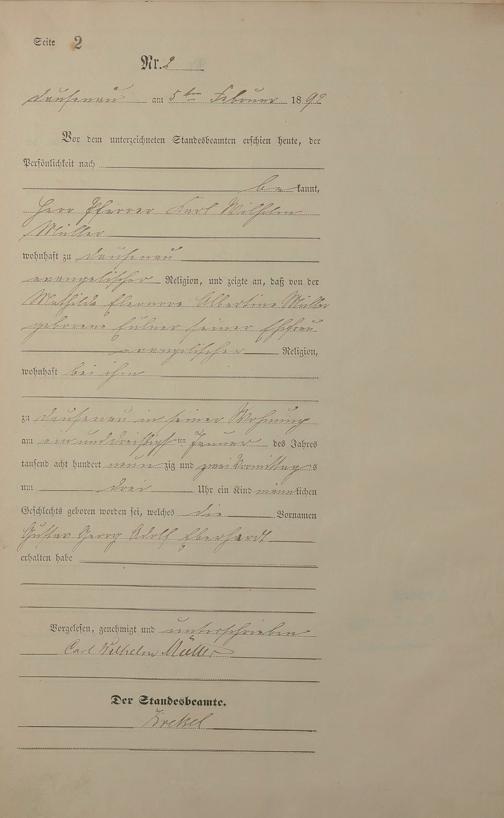 Seite 2
Nr. 2
Dausenau am 5ten Februar 1892
Vor dem unterzeichneten Standesbeamten erschien heute, der
Persönlichkeit nach
bekannt,
Herr Pfarrer Karl Wilhelm
Müller
wohnhaft zu Dausenau
evangelischer Religion, und zeigte an, daß von der
Mathilde Eleonore Albertine Müller
geborene seiner Ehefrau
evangelischer Religion,
wohnhaft bei ihm
zu Dausenau in seiner Wohnung
am ein und dreißigsten Januar des Jahres
tausend acht hundert neunzig und zwei Vormittags
um drei Uhr ein Kind männlichen
Geschlechts geboren worden sei, welches die Vornamen
Gustav Georg Adolf Eberhardt
erhalten habe
Vorgelesen, genehmigt und unterschrieben
Carl Wilhelm Müller
Der Standesbeamte.